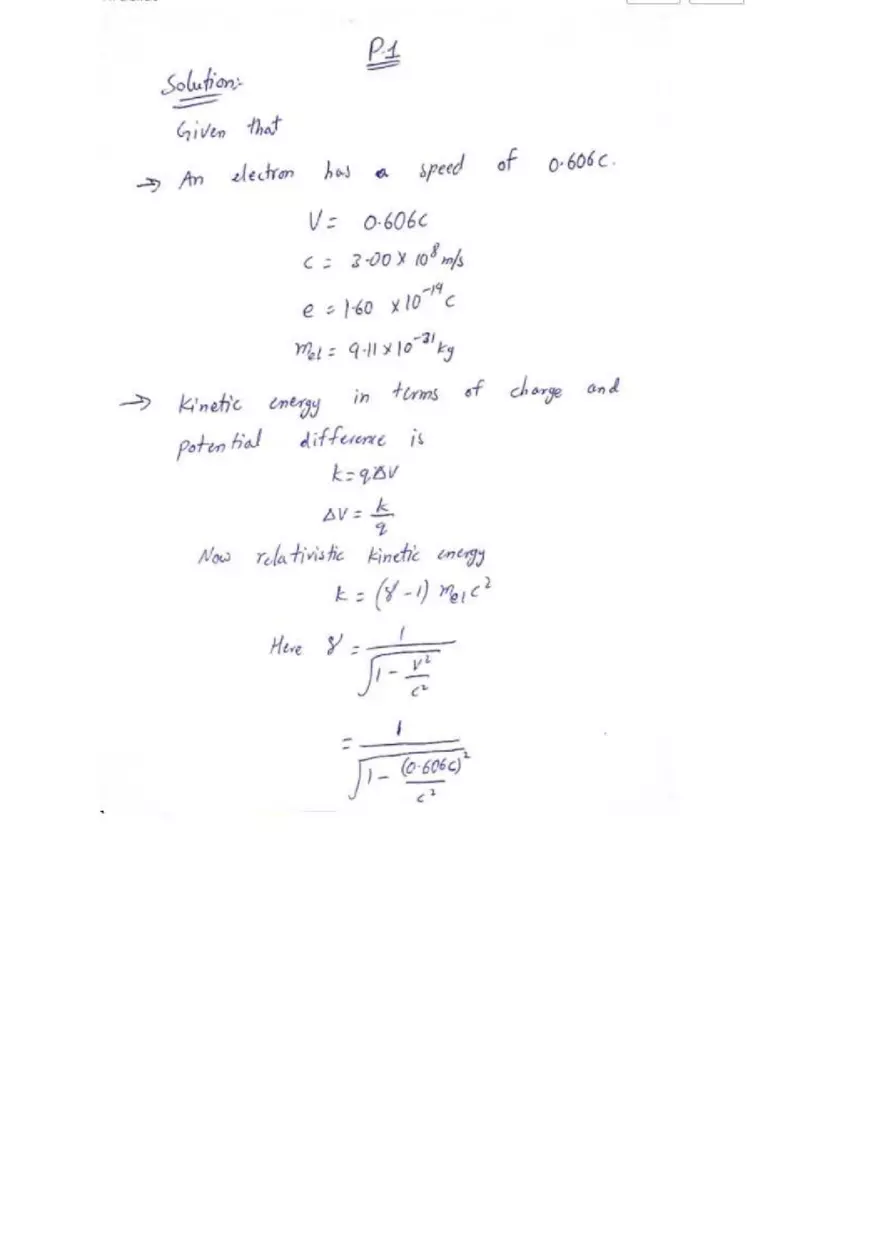 P.1
Solution:-
Given that
→ An electron has a speed of 0.606c.
V = 0.606c
c = 3.00 × 10⁸ m/s
e = 1.60 × 10⁻¹⁹ C
mₑₗ = 9.11 × 10⁻³¹ kg
→ Kinetic energy in terms of charge and
potential difference is
k = qΔV
ΔV = k/q
Now relativistic kinetic energy
k = (γ - 1) mₑₗ c²
Here γ = 1/√(1 - V²/c²)
= 1/√(1 - (0.606c)²/c²)